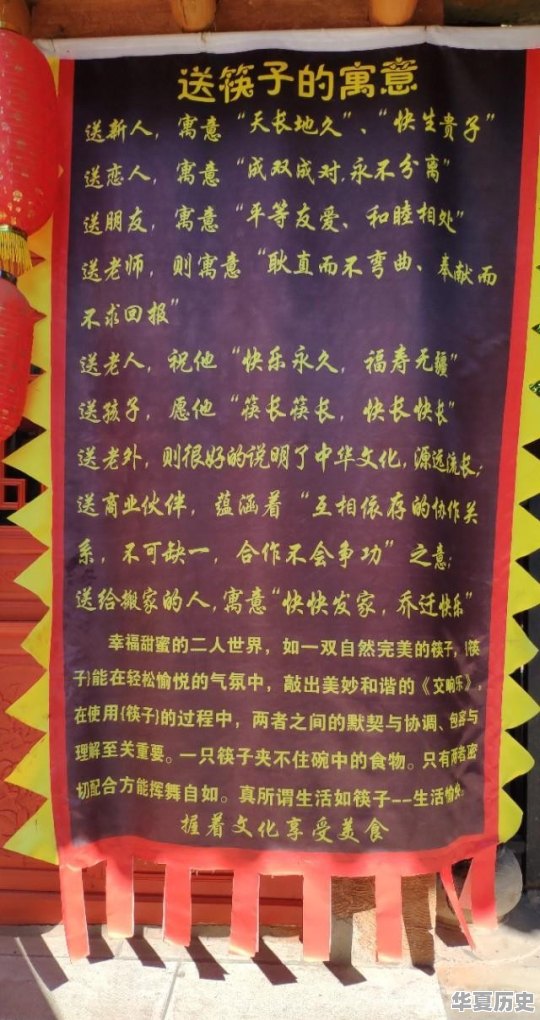 送筷子的寓意
送新人，寓意“天长地久”、“快生贵子”
送恋人，寓意“成双成对,永不分离”
送朋友，寓意“平等友爱、和睦相处”
送老师，则寓意“耿直而不弯曲、奉献而
不求回报”
送老人，祝他“快乐永久，福寿无疆”
送孩子，愿他“筷长筷长，快长快长”
送老外，则很好的说明了中华文化,源远流长;
送商业伙伴，蕴涵着“互相依存的协作关
系，不可缺一，合作不会争功”之意;
送给搬家的人,寓意“快快发家，乔迁快乐”
幸福甜蜜的二人世界，如一双自然完美的筷子,{筷
子}能在轻松愉悦的气氛中，敲出美妙和谐的《交响乐》,
在使用{筷子}的过程中，两者之间的默契与协调、包容与
理解至关重要。一只筷子夹不住碗中的食物。只有两者密
切配合方能挥舞自如。真所谓生活如筷子--生活愉快
握着文化享受美食
华夏历史